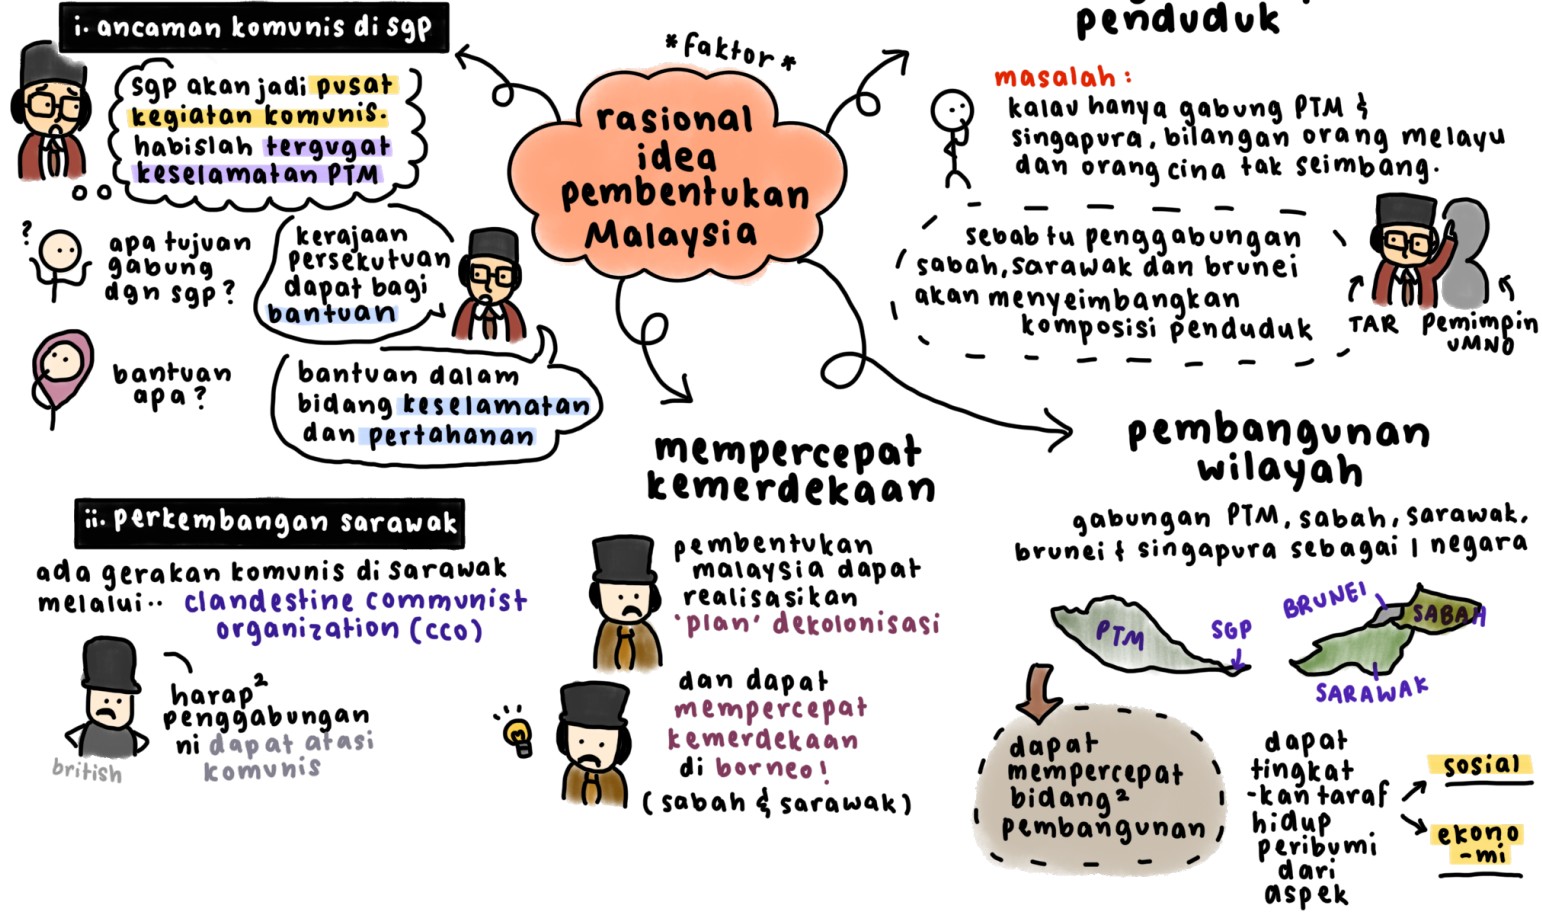 *faktor*
rasional
idea
pembentukan
Malaysia
i. ancaman komunis di sgp
sgp akan jadi pusat
kegiatan komunis.
habislah tergugat
keselamatan PTM
?
apa tujuan
gabung
dgn sgp?
kerajaan
persekutuan
dapat bagi
bantuan
bantuan
apa?
bantuan dalam
bidang keselamatan
dan pertahanan
ii. perkembangan sarawak
ada gerakan komunis di sarawak
melalui.. clandestine communist
organization (cco)
harap²
penggabungan
ni dapat atasi
komunis
british
mempercepat
kemerdekaan
pembentukan
malaysia dapat
realisasikan
'plan' dekolonisasi
dan dapat
mempercepat
kemerdekaan
di borneo!
(sabah & sarawak)
penduduk
masalah:
kalau hanya gabung PTM &
singapura, bilangan orang melayu
dan orang cina tak seimbang.
sebab tu penggabungan
sabah, sarawak dan brunei
akan menyeimbangkan
komposisi penduduk
TAR
Pemimpin
UMNO
pembangunan
wilayah
gabungan PTM, sabah, sarawak,
brunei & singapura sebagai 1 negara
PTM
SGP
BRUNEI
SABAH
SARAWAK
dapat
mempercepat
bidang²
pembangunan
dapat
tingkat
-kan taraf
hidup
peribumi
dari
aspek
sosial
ekono
-mi